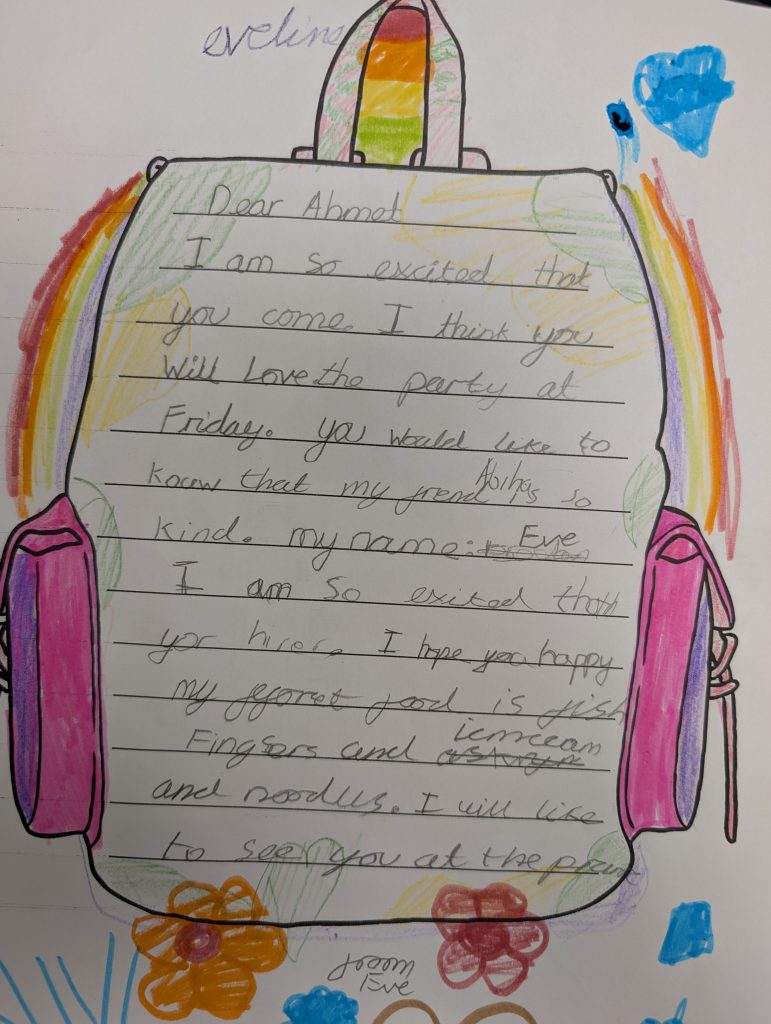 eveline
Dear Ahmet
I am so excited that
you come. I think you
will Love the party at
Friday. you would like to
know that my frend Abiha is so
kind. my name: Eve
I am so exited thath
yor hirer. I hope you happy
my fevoret food is fish
Fingers and icmceam
and noodles. I will like
to see you at the
from
Eve